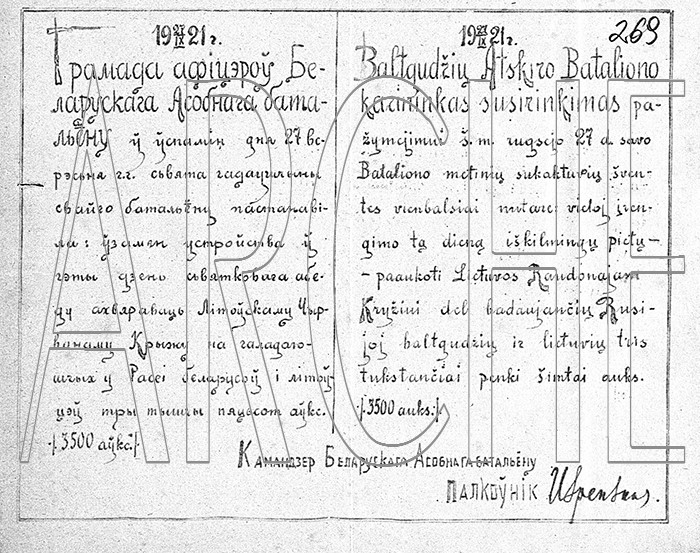 269
19 27/IX 21 г.
Грамада афіцэроў Бе-
ларускага Асобнага бата-
льёну ў ўспамін дня 27 ве-
рэсьня г.г. сьвята гадаўшчыны
свайго батальёну пастанаві-
ла: ўзамен устройства ў
гэты дзень сьвятковага абе-
ду ахвяраваць Літоўскаму Чыр-
вонаму Крыжу на галадаю-
шчых у Расеі беларусоў і літоў-
цаў тры тысячы пяцьсот аўкс.
/3500 аўкс./.
19 27/IX 21 г.
Baltgudžių Atskiro Bataliono
karininkas susirinkimas pa-
žymėjimui š. m. rugsėjo 27 d. savo
Bataliono metinių sukaktuvių šven-
tės vienbalsiai nutarė: vietoj įren-
gimo tą dieną iškilmingų pietų-
-paaukoti Lietuvos Raudonajam
Kryžiui dėl badaujančių Rusi-
joj baltgudžių ir lietuvių tris
tukstančiai penki šimtai auks.
/3500 auks./.
Камандзер Беларускага Асобнага батальёну
Палкоўнік Успенскі.
ARCHE